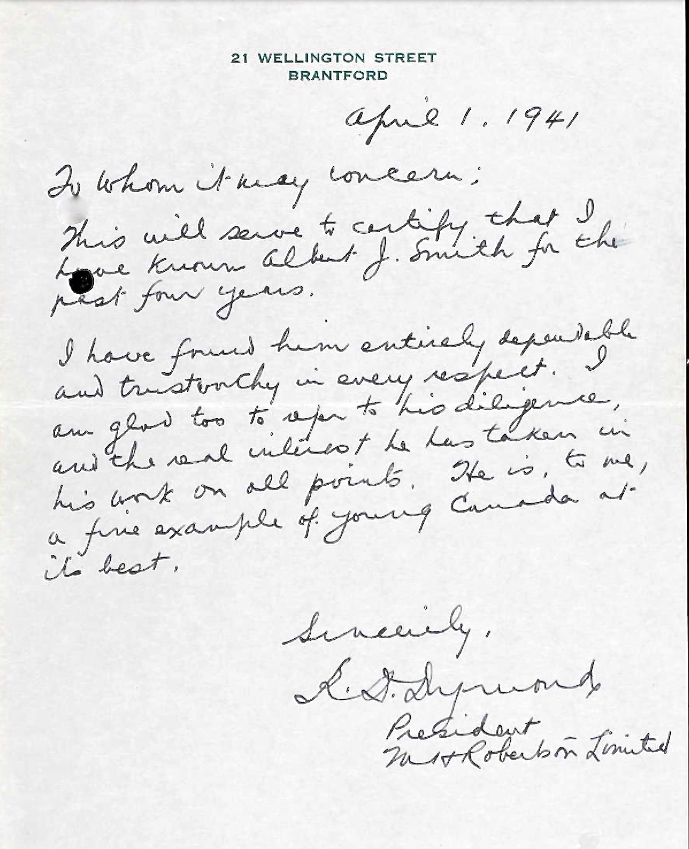 21 WELLINGTON STREET
BRANTFORD
April 1, 1941
To whom it may concern;
This will serve to certify that I
have known Albert J. Smith for the
past four years.
I have found him entirely dependable
and trustworthy in every respect. I
am glad too to refer to his diligence,
and the real interest he has taken in
his work on all points. He is, to me,
a fine example of young Canada at
its best.
Sincerely,
Dymond
President
Robertson Limited